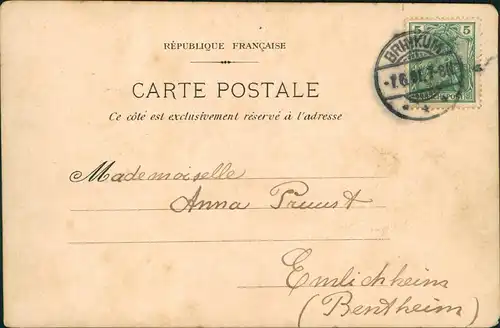 RÉPUBLIQUE FRANÇAISE
CARTE POSTALE
Ce côté est exclusivement réservé à l'adresse
5 5
BRINKUM
Mademoiselle
Anna
Emlichheim
(Bentheim)